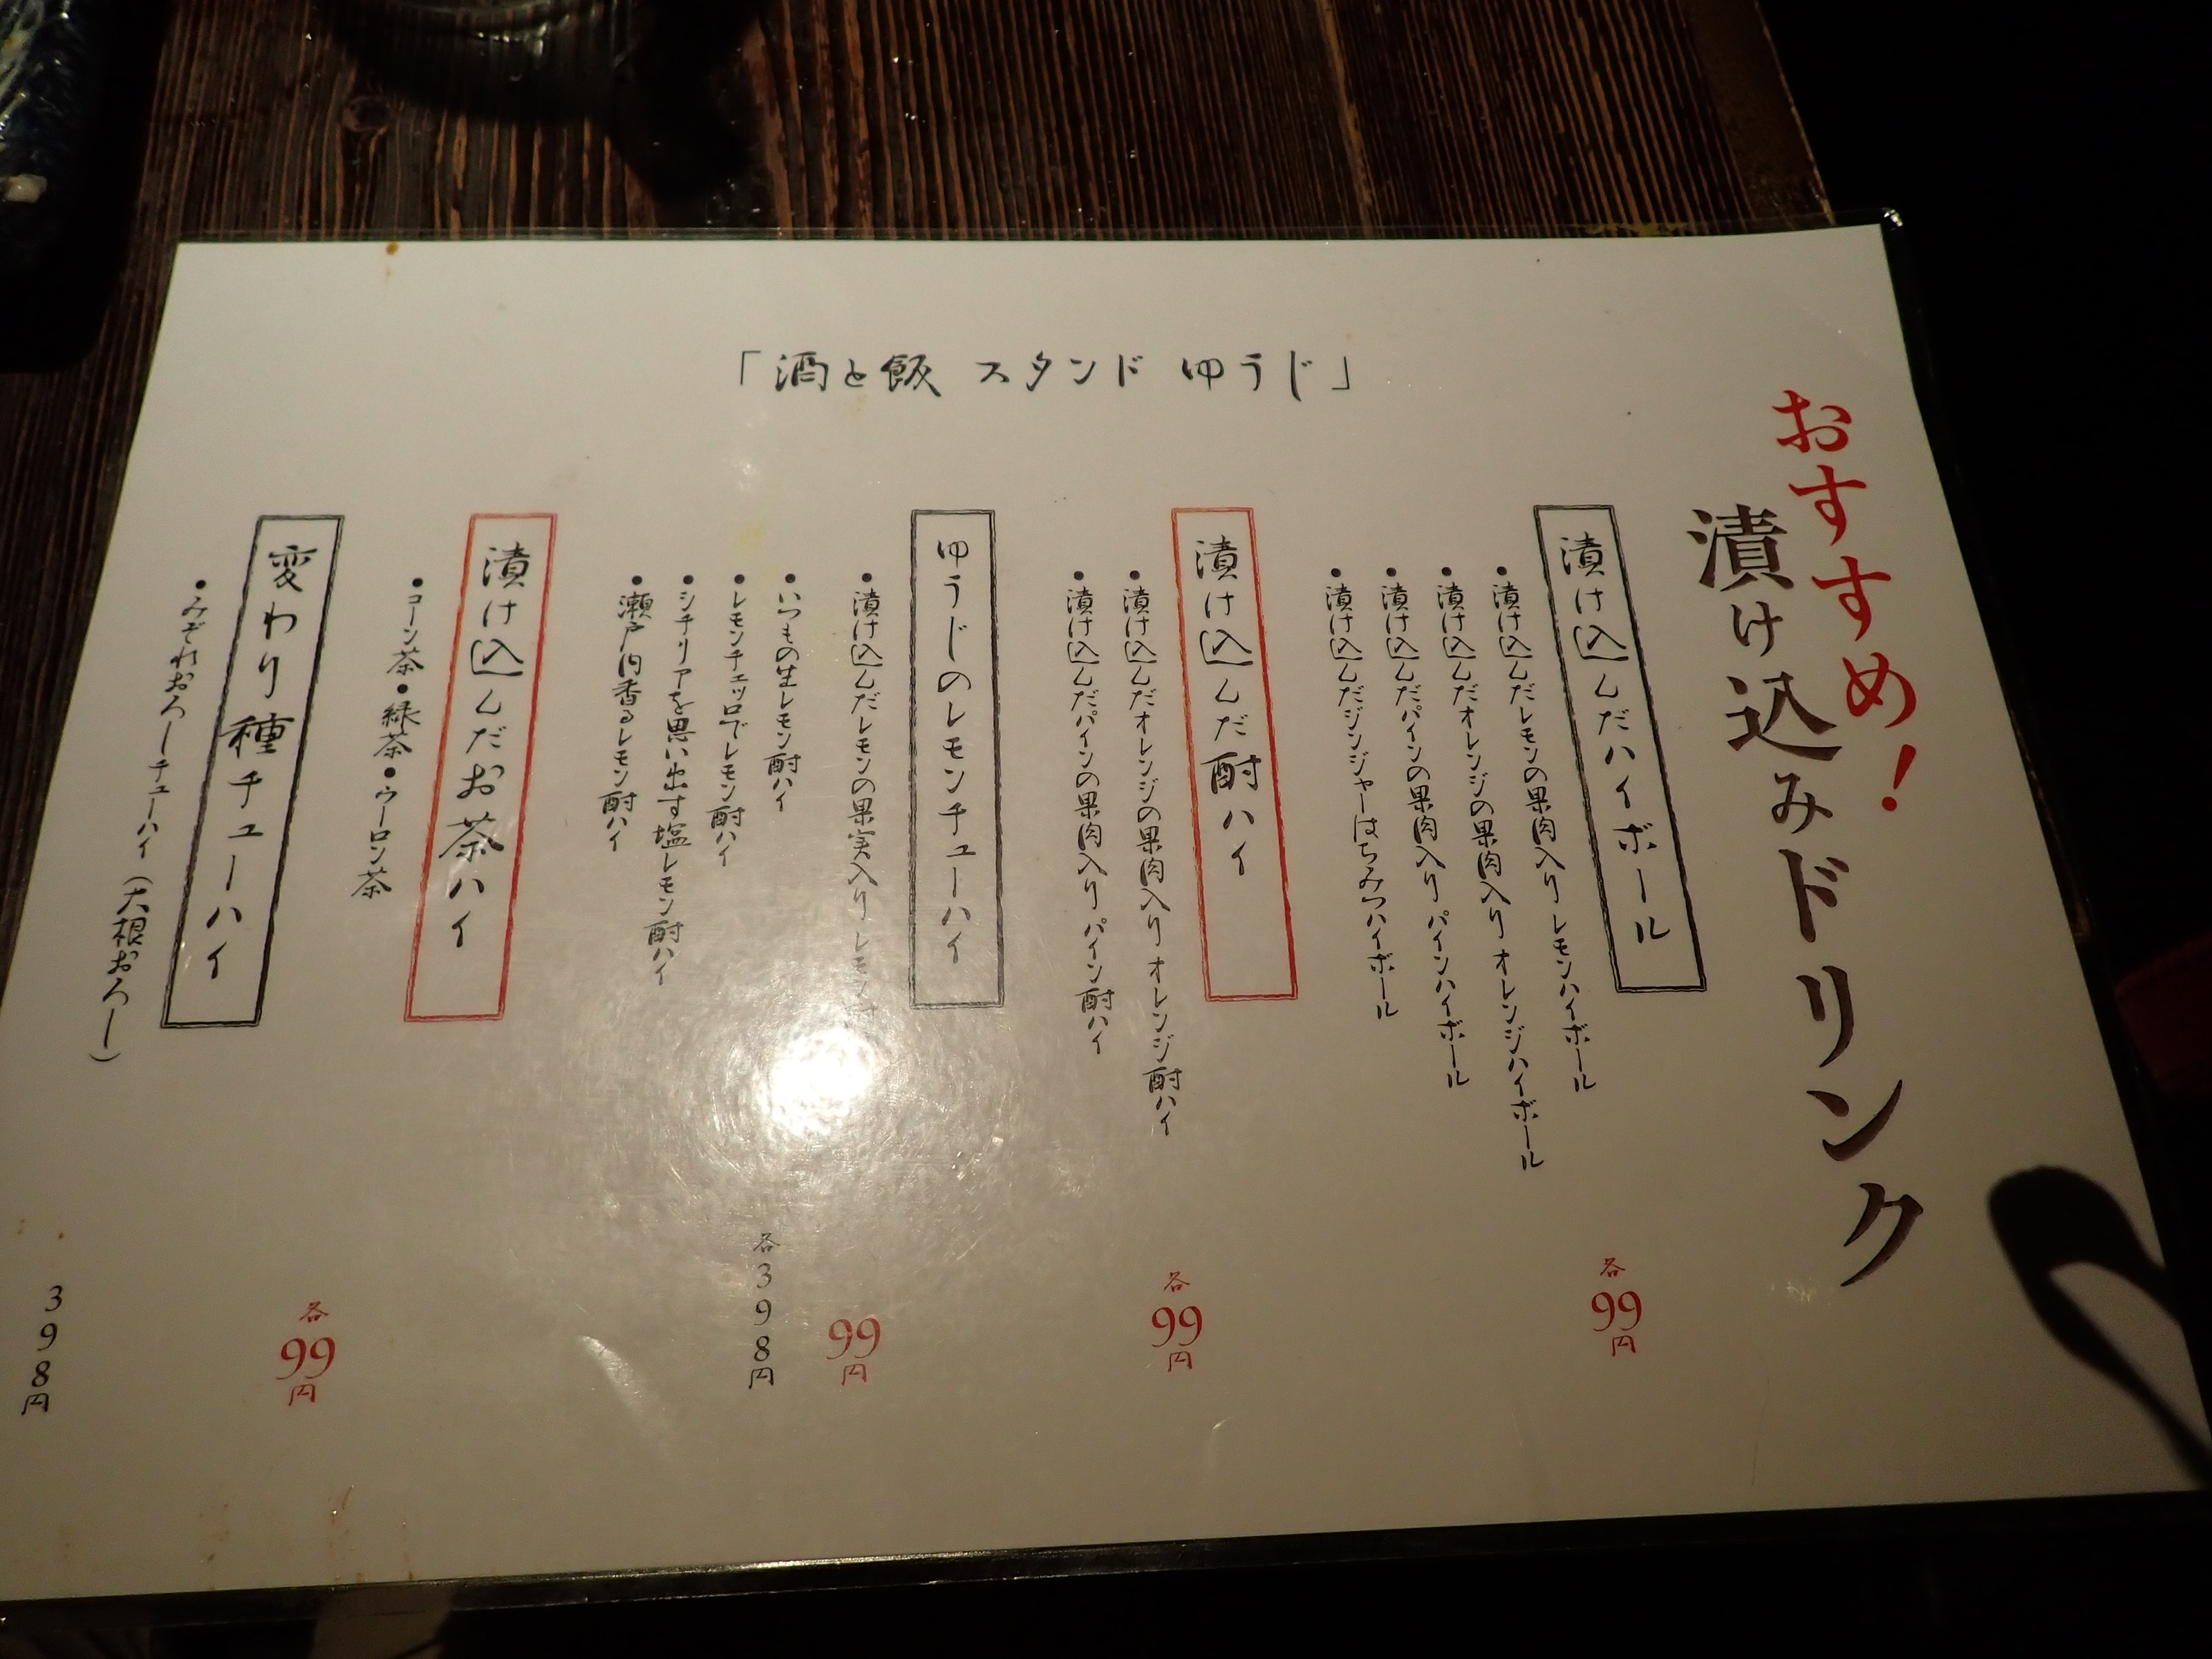 「酒と飯 スタンド ゆうじ」
おすすめ!
漬け込みドリンク
漬け込んだハイボール
•漬け込んだレモンの果肉入り レモンハイボール
•漬け込んだオレンジの果肉入り オレンジハイボール
•漬け込んだパインの果肉入り パインハイボール
•漬け込んだジンジャーはちみつハイボール
各99円
漬け込んだ酎ハイ
•漬け込んだオレンジの果肉入り オレンジ酎ハイ
•漬け込んだパインの果肉入り パイン酎ハイ
各99円
ゆうじのレモンチューハイ
•漬け込んだレモンの果実入り
99円
•いつもの生レモン酎ハイ
•レモンチェッロでレモン酎ハイ
•シチリアを思い出す塩レモン酎ハイ
•瀬戸内香るレモン酎ハイ
各398円
漬け込んだお茶ハイ
•コーン茶•緑茶•ウーロン茶
各99円
変わり種チューハイ
•みぞれおろしチューハイ(大根おろし)
398円